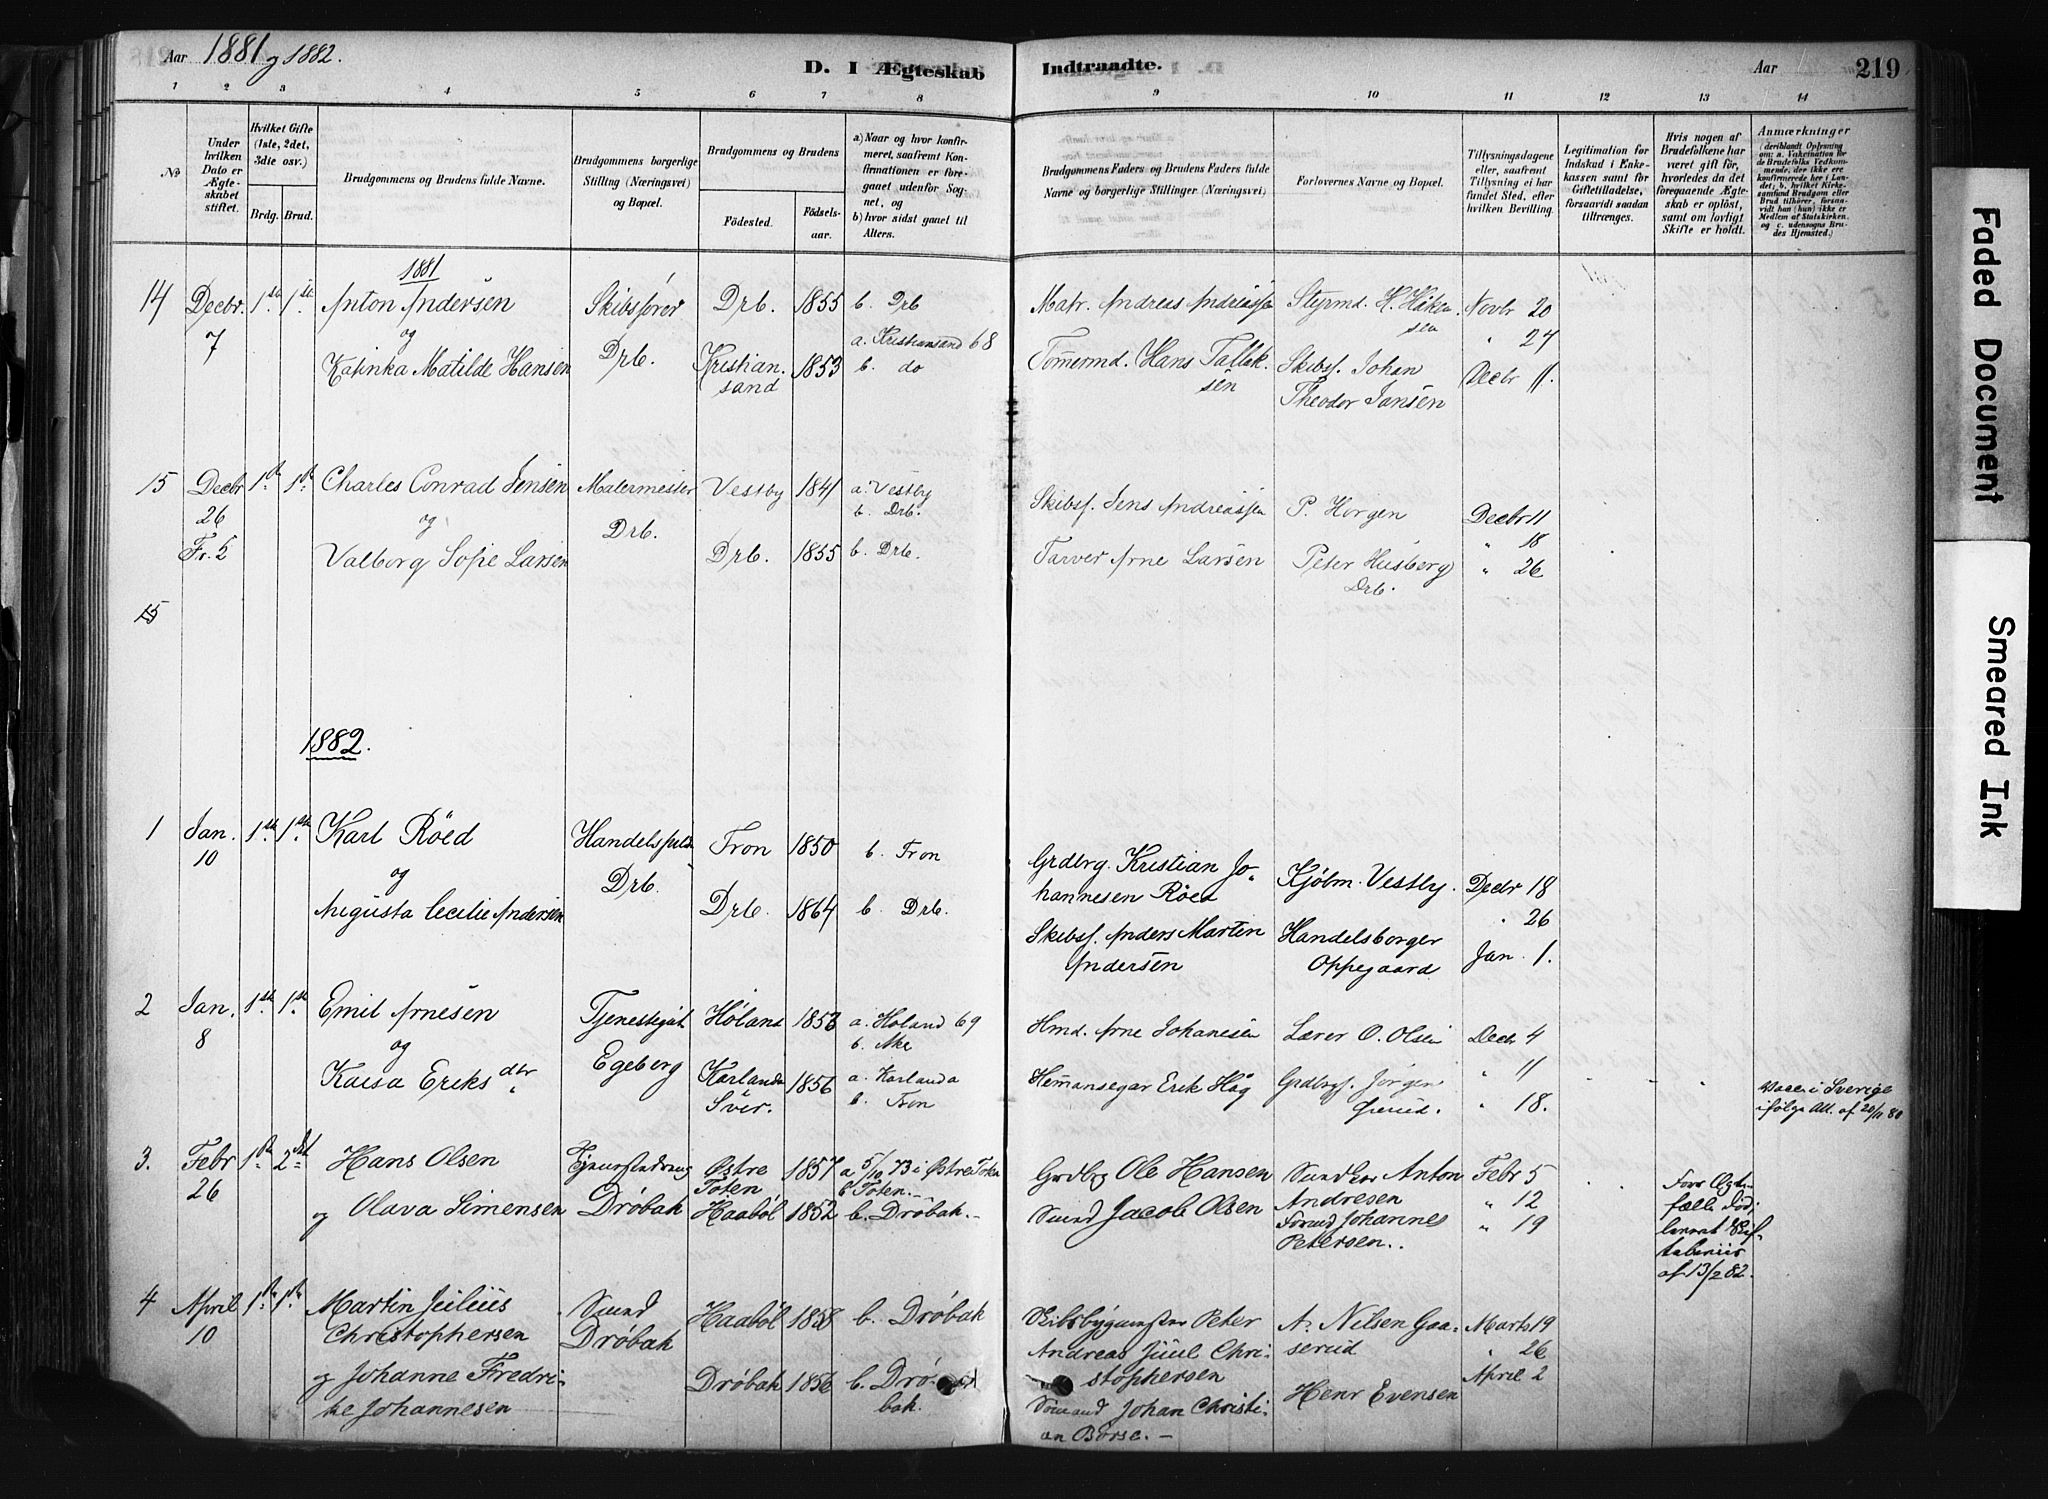 Aar 1881 og 1882.
D. I Ægteskab Indtraadte.
Aar
219
1 2 3 4 5 6 7 8 9 10 11 12 13 14
No
Under hvilken Dato er Ægteskabet stiftet.
Hvilket Gifte (1ste, 2det, 3die osv.)
Brdg. Brud.
Brudgommens og Brudens fulde Navne.
Brudgommens borgerlige Stilling (Næringsvei) og Bopæl.
Brudgommens og Brudens
Födested. Födsels-aar.
a) Naar og hvor konfirmeret, saafremt Konfirmationen er foregaaet udenfor Sognet, og
b) hvor sidst gaaet til Alters.
Brudgommens Faders og Brudens Faders fulde Navne og borgerlige Stillinger (Næringsvei).
Forlovernes Navne og Bopæl.
Tillysningsdagene eller, saafremt Tillysning ei har fundet Sted, efter hvilken Bevilling.
Legitimation for Indskud i Enkekassen samt for Giftetilladelse, forsaavidt saadan tiltrænges.
Hvis nogen af Brudefolkene har været gift før, hvorledes da det foregaaende Ægteskab er oplöst, samt om lovligt Skifte er holdt.
Anmærkninger (deriblandt Oplysning om: a. Vakcination for de Brudefolks Vedkommende, der ikke ere konfirmerede her i Landet; b. hvilket Kirkesamfund Brudgom eller Brud tilhører, forsaavidt han (hun) ikke er Medlem af Statskirken, og c. udensogns Brudes Hjemsted.)
1881
14 Decbr. 1st. 1st. Anton Andersen Skibsfører Drb. 1855 b. Drb Matr. Andreas Andreassen Styrmd. H. Håkensen Novbr 20
7 og Drb. a. Kristiansand 68 " 27
Katinka Matilde Hansen Kristiansand 1853 b. do Tømermd. Hans Tallaksen Skibsf. Johan Theodor Jansen Decbr 11.
15 Decbr 1ste 1ste Charles Conrad Jensen Malermester Vestby 1841 a. Vestby Skibsf. Jens Andreassen P. Horgen Decbr 11
26 og Drb. b. Drb. " 18
Fr. 5 Valborg Sofie Larsen Drb. 1855 b. Drb. Farver Arne Larsen Peter Husberg Drb. " 26
15
1882.
1 Jan. 1ste 1ste Karl Röed Drb. Fron 1850 b. Fron Grdbrg. Kristian Johannesen Röed Kjøbm. Vestby. Decbr 18
10 og " 26
Augusta Cecilie Andersen Drb. 1864 b. Drb. Skibsf. Anders Martin Andersen Handelsborger Oppegaard Jan. 1.
2 Jan. 1ste 1ste Emil Arnesen Høland a. Høland 69 Hmd. Arne Johanesen Lærer O. Olsen Decbr 4
8 og Egeberg b. Ake " 11
Kaisa Eriksdtr Karlanda Sver. 1856 a. Karlanda Hemansegar Erik Håg Grdbrgf. Jørgen " 18.
b. Fron
Vacc. i Sverige ifølge Att. af
3. Febr 1ste 2det Hans Olsen Østre Toten 1857 a 5/10 73 i Østre Toten Grdbrg Ole Hansen Anton Andresen Febr 5
26 b. Toten. " 12
og Olava Simensen Drøbak Haabøl 1852 b. Drøbak. Jacob Olsen Johannes Petersen. " 19
af 13/2 82.
4 April 1ste 1ste Martin Julius Christophersen Drøbak Haabøl 1858 b. Drøbak Skibsbygmster Peter Andreas Juul Christophersen A. Nilsen Gaaserud Marts 19
10 " 26
og Johanne Fredrike Johannesen Drøbak 1856 b. Drøbak. Johan Christian Borse. Henr Evensen April 2
Faded Document
Smeared Ink